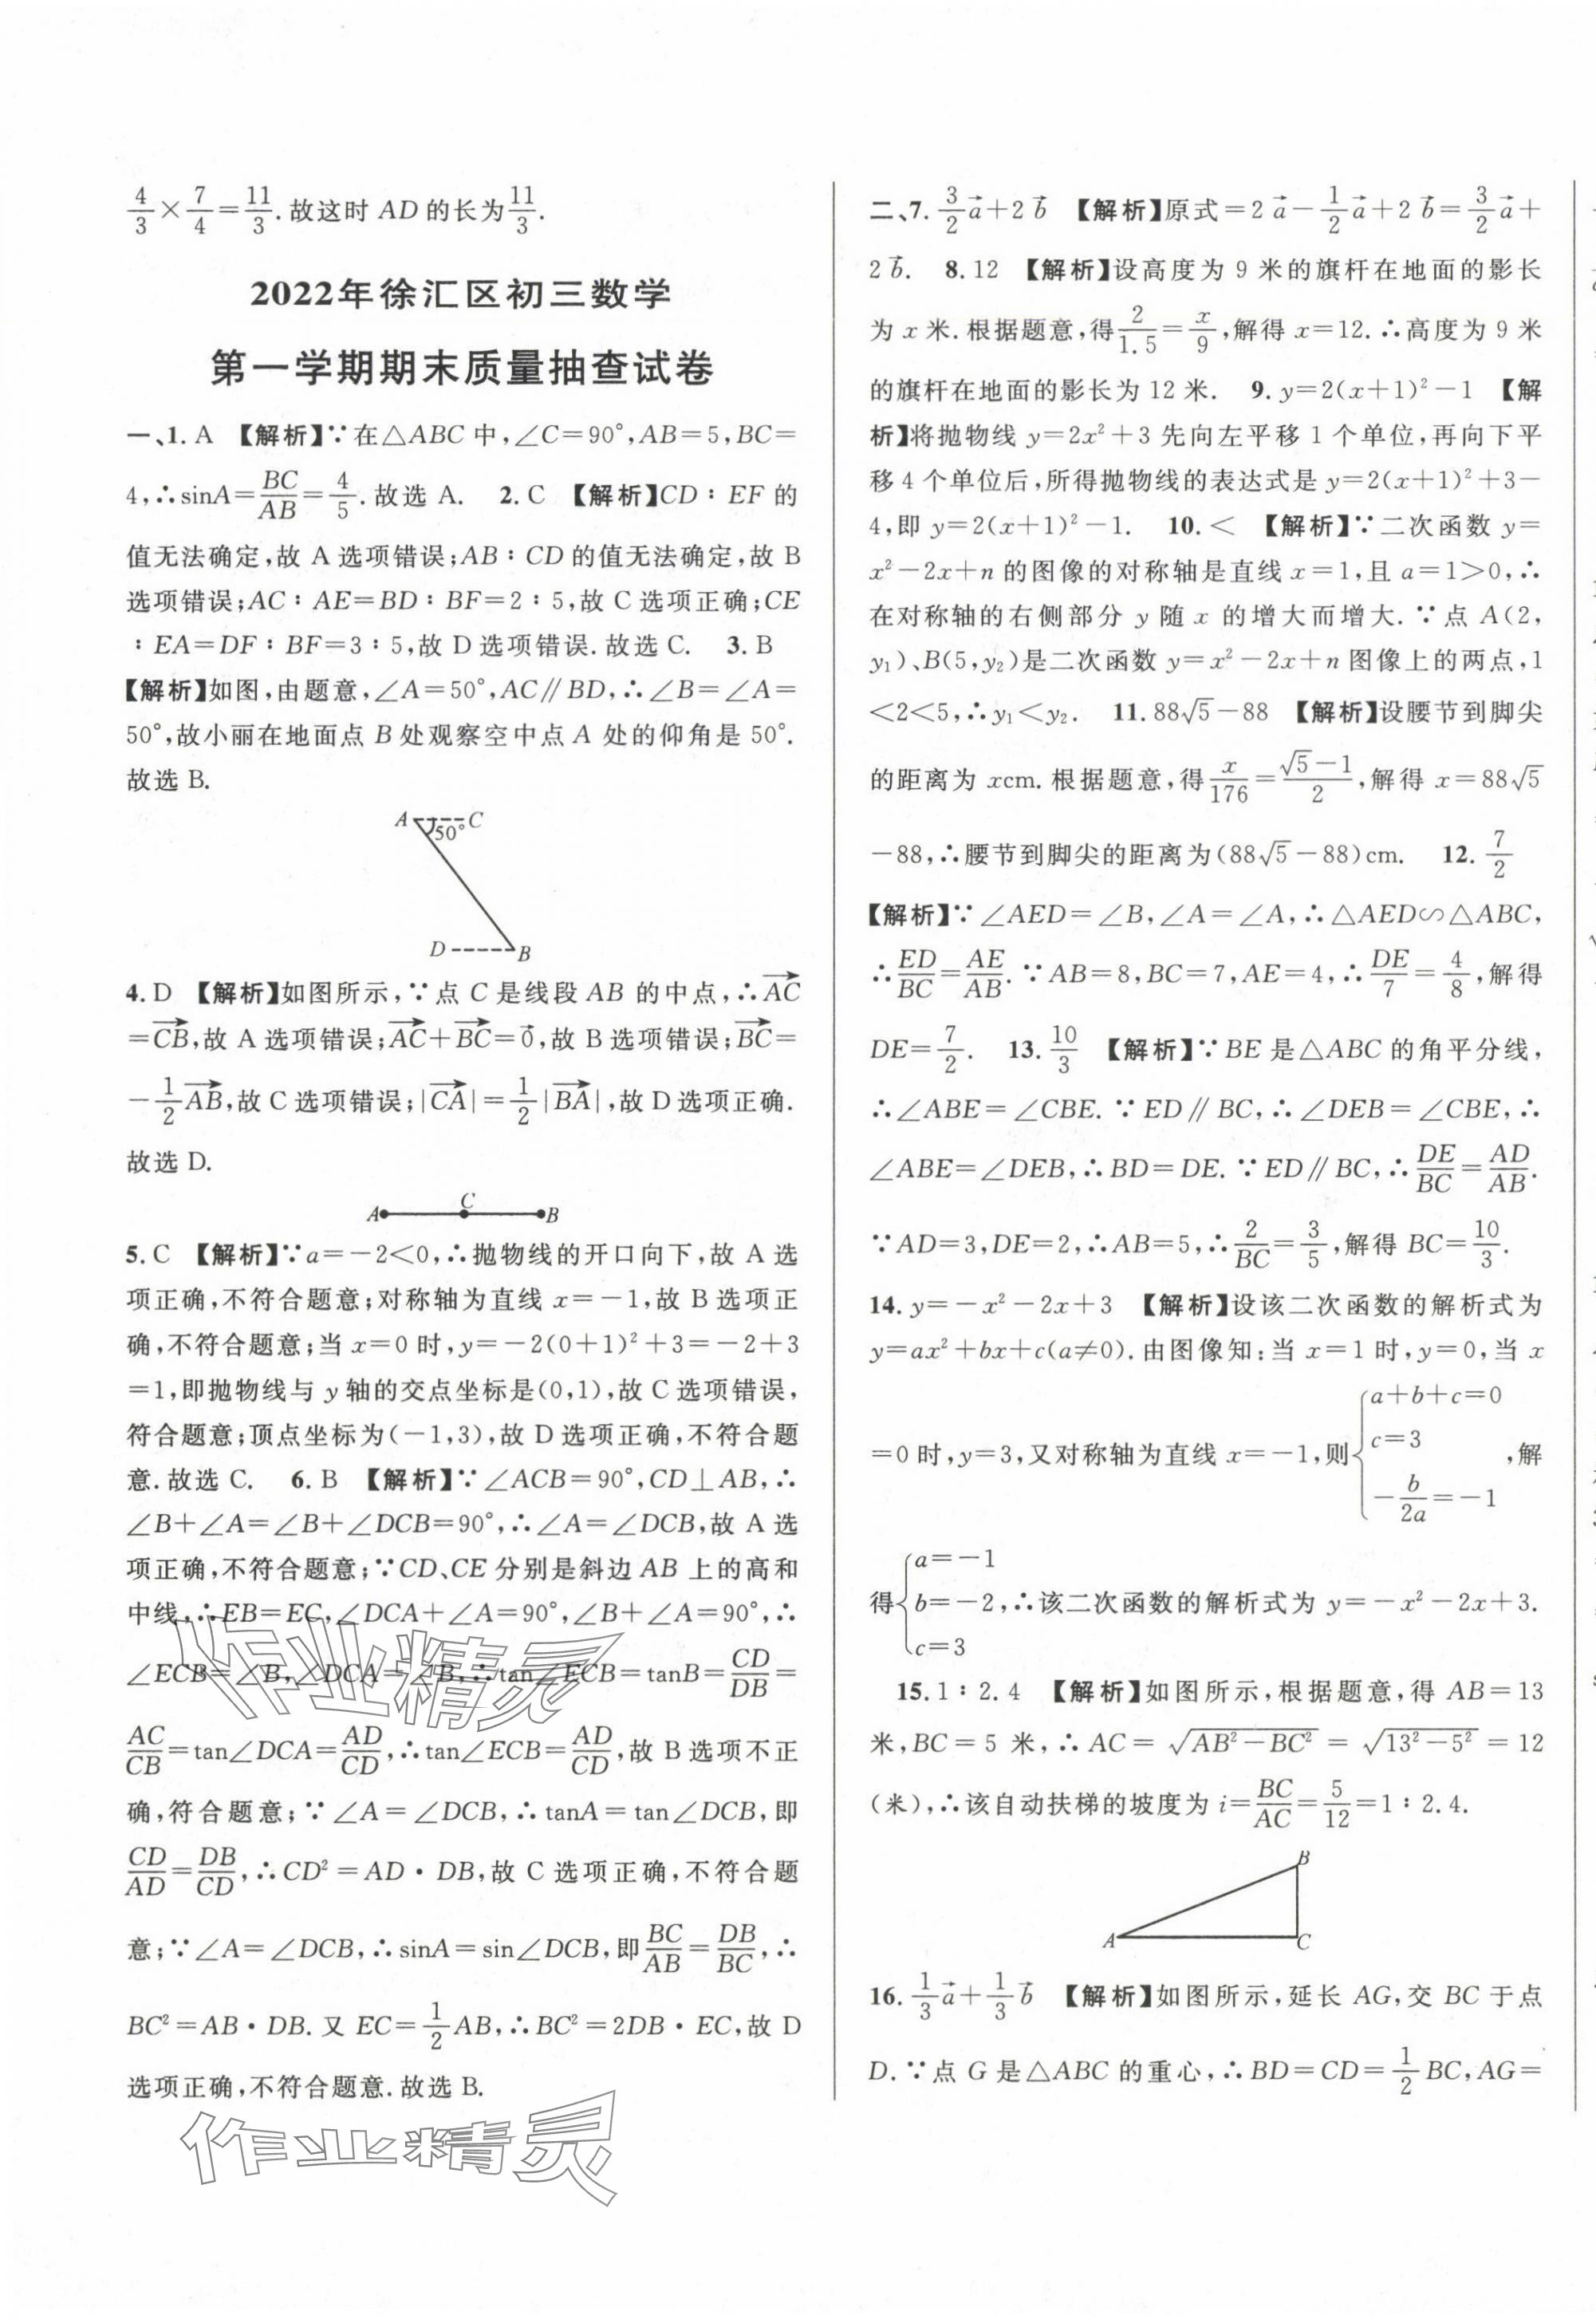 4/3×7/4=11/3.故这时 AD 的长为11/3.
2022年徐汇区初三数学
第一学期期末质量抽查试卷
一、1. A 【解析】∵在△ABC 中,∠C=90°,AB=5,BC=
4,∴sinA=BC/AB=4/5.故选 A. 2. C 【解析】CD∶EF 的
值无法确定,故 A 选项错误;AB∶CD 的值无法确定,故 B
选项错误;AC∶AE=BD∶BF=2∶5,故 C 选项正确;CE
∶EA=DF∶BF=3∶5,故 D 选项错误.故选 C. 3. B
【解析】如图,由题意,∠A=50°,AC∥BD,∴∠B=∠A=
50°,故小丽在地面点 B 处观察空中点 A 处的仰角是 50°.
故选 B.
A C
50°
D B
4. D 【解析】如图所示,∵点 C 是线段 AB 的中点,∴AC→
=CB→,故 A 选项错误;AC→+BC→=0→,故 B 选项错误;BC→=
-1/2AB→,故 C 选项错误;|CA→|=1/2|BA→|,故 D 选项正确.
故选 D.
A C B
5. C 【解析】∵a=-2<0,∴抛物线的开口向下,故 A 选
项正确,不符合题意;对称轴为直线 x=-1,故 B 选项正
确,不符合题意;当 x=0 时,y=-2(0+1)²+3=-2+3
=1,即抛物线与 y 轴的交点坐标是(0,1),故 C 选项错误,
符合题意;顶点坐标为(-1,3),故 D 选项正确,不符合题
意.故选 C. 6. B 【解析】∵∠ACB=90°,CD⊥AB,∴
∠B+∠A=∠B+∠DCB=90°,∴∠A=∠DCB,故 A 选
项正确,不符合题意;∵CD、CE 分别是斜边 AB 上的高和
中线,∴EB=EC,∠DCA+∠A=90°,∠B+∠A=90°,∴
∠ECB=∠B,∠DCA=∠B,∴tan∠ECB=tanB=CD/DB=
AC/CB=tan∠DCA=AD/CD,∴tan∠ECB=AD/CD,故 B 选项不正
确,符合题意;∵∠A=∠DCB,∴tanA=tan∠DCB,即
CD/AD=DB/CD,∴CD²=AD·DB,故 C 选项正确,不符合题
意;∵∠A=∠DCB,∴sinA=sin∠DCB,即BC/AB=DB/BC,∴
BC²=AB·DB.又 EC=1/2AB,∴BC²=2DB·EC,故 D
选项正确,不符合题意.故选 B.
作业精灵
作业精灵
二、7. 3/2a→+2b→ 【解析】原式=2a→-1/2a→+2b→=3/2a→+
2b→. 8. 12 【解析】设高度为 9 米的旗杆在地面的影长
为 x 米.根据题意,得2/1.5=x/9,解得 x=12.∴高度为 9 米
的旗杆在地面的影长为 12 米. 9. y=2(x+1)²-1 【解
析】将抛物线 y=2x²+3 先向左平移 1 个单位,再向下平
移 4 个单位后,所得抛物线的表达式是 y=2(x+1)²+3-
4,即 y=2(x+1)²-1. 10. < 【解析】∵二次函数 y=
x²-2x+n 的图像的对称轴是直线 x=1,且 a=1>0,∴
在对称轴的右侧部分 y 随 x 的增大而增大.∵点 A(2,
y₁)、B(5,y₂)是二次函数 y=x²-2x+n 图像上的两点,1
<2<5,∴y₁<y₂. 11. 88√5-88 【解析】设腰节到脚尖
的距离为 xcm.根据题意,得x/176=(√5-1)/2,解得 x=88√5
-88,∴腰节到脚尖的距离为(88√5-88)cm. 12. 7/2
【解析】∵∠AED=∠B,∠A=∠A,∴△AED∽△ABC,
∴ED/BC=AE/AB.∵AB=8,BC=7,AE=4,∴DE/7=4/8,解得
DE=7/2. 13. 10/3 【解析】∵BE 是△ABC 的角平分线,
∴∠ABE=∠CBE.∵ED∥BC,∴∠DEB=∠CBE,∴
∠ABE=∠DEB,∴BD=DE.∵ED∥BC,∴DE/BC=AD/AB.
∵AD=3,DE=2,∴AB=5,∴2/BC=3/5,解得 BC=10/3.
14. y=-x²-2x+3 【解析】设该二次函数的解析式为
y=ax²+bx+c(a≠0).由图像知:当 x=1 时,y=0,当 x
=0 时,y=3,又对称轴为直线 x=-1,则{a+b+c=0 c=3 -b/2a=-1,解
得{a=-1 b=-2 c=3,∴该二次函数的解析式为 y=-x²-2x+3.
15. 1∶2.4 【解析】如图所示,根据题意,得 AB=13
米,BC=5 米,∴AC=√(AB²-BC²)=√(13²-5²)=12
(米),∴该自动扶梯的坡度为 i=BC/AC=5/12=1∶2.4.
B
A C
16. 1/3a→+1/3b→ 【解析】如图所示,延长 AG,交 BC 于点
D.∵点 G 是△ABC 的重心,∴BD=CD=1/2BC,AG=